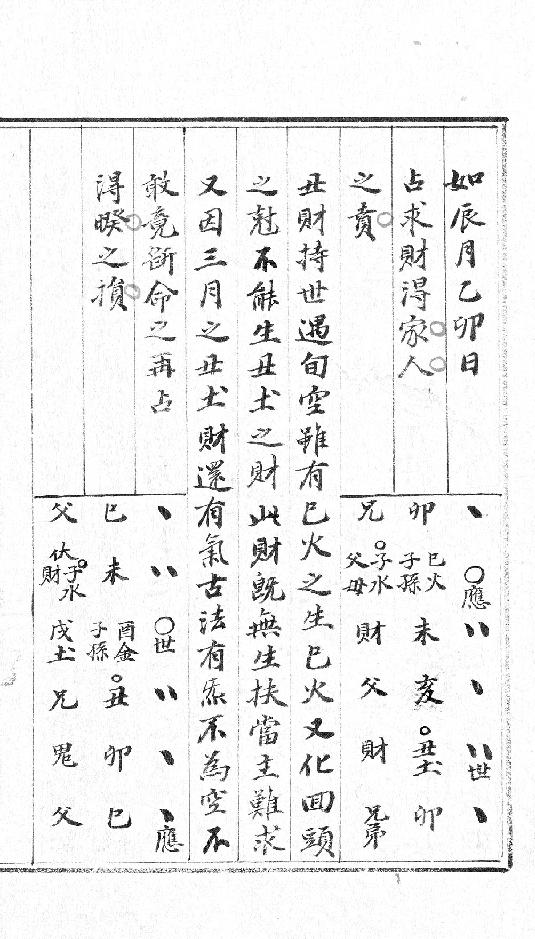 如辰月乙卯日
占求財淂家人
之賁
丶 〇應 丶丶 丶 丶丶世 丶
卯 巳火子孫 未 亥 丑土 卯
兄 子水父母 財 父 財 兄弟
丑財持世遇旬空雖有巳火之生巳火又化回頭
之尅不能生丑土之財此財旣無生扶當主難求
又因三月之丑土財還有氣古法有炁不為空不
敢竟斷命之再占
淂睽之損
丶 丶丶 〇世 丶丶 丶 丶應
巳 未 酉金子孫 丑 卯 巳
父 伏子水財 戌土 兄 鬼 父